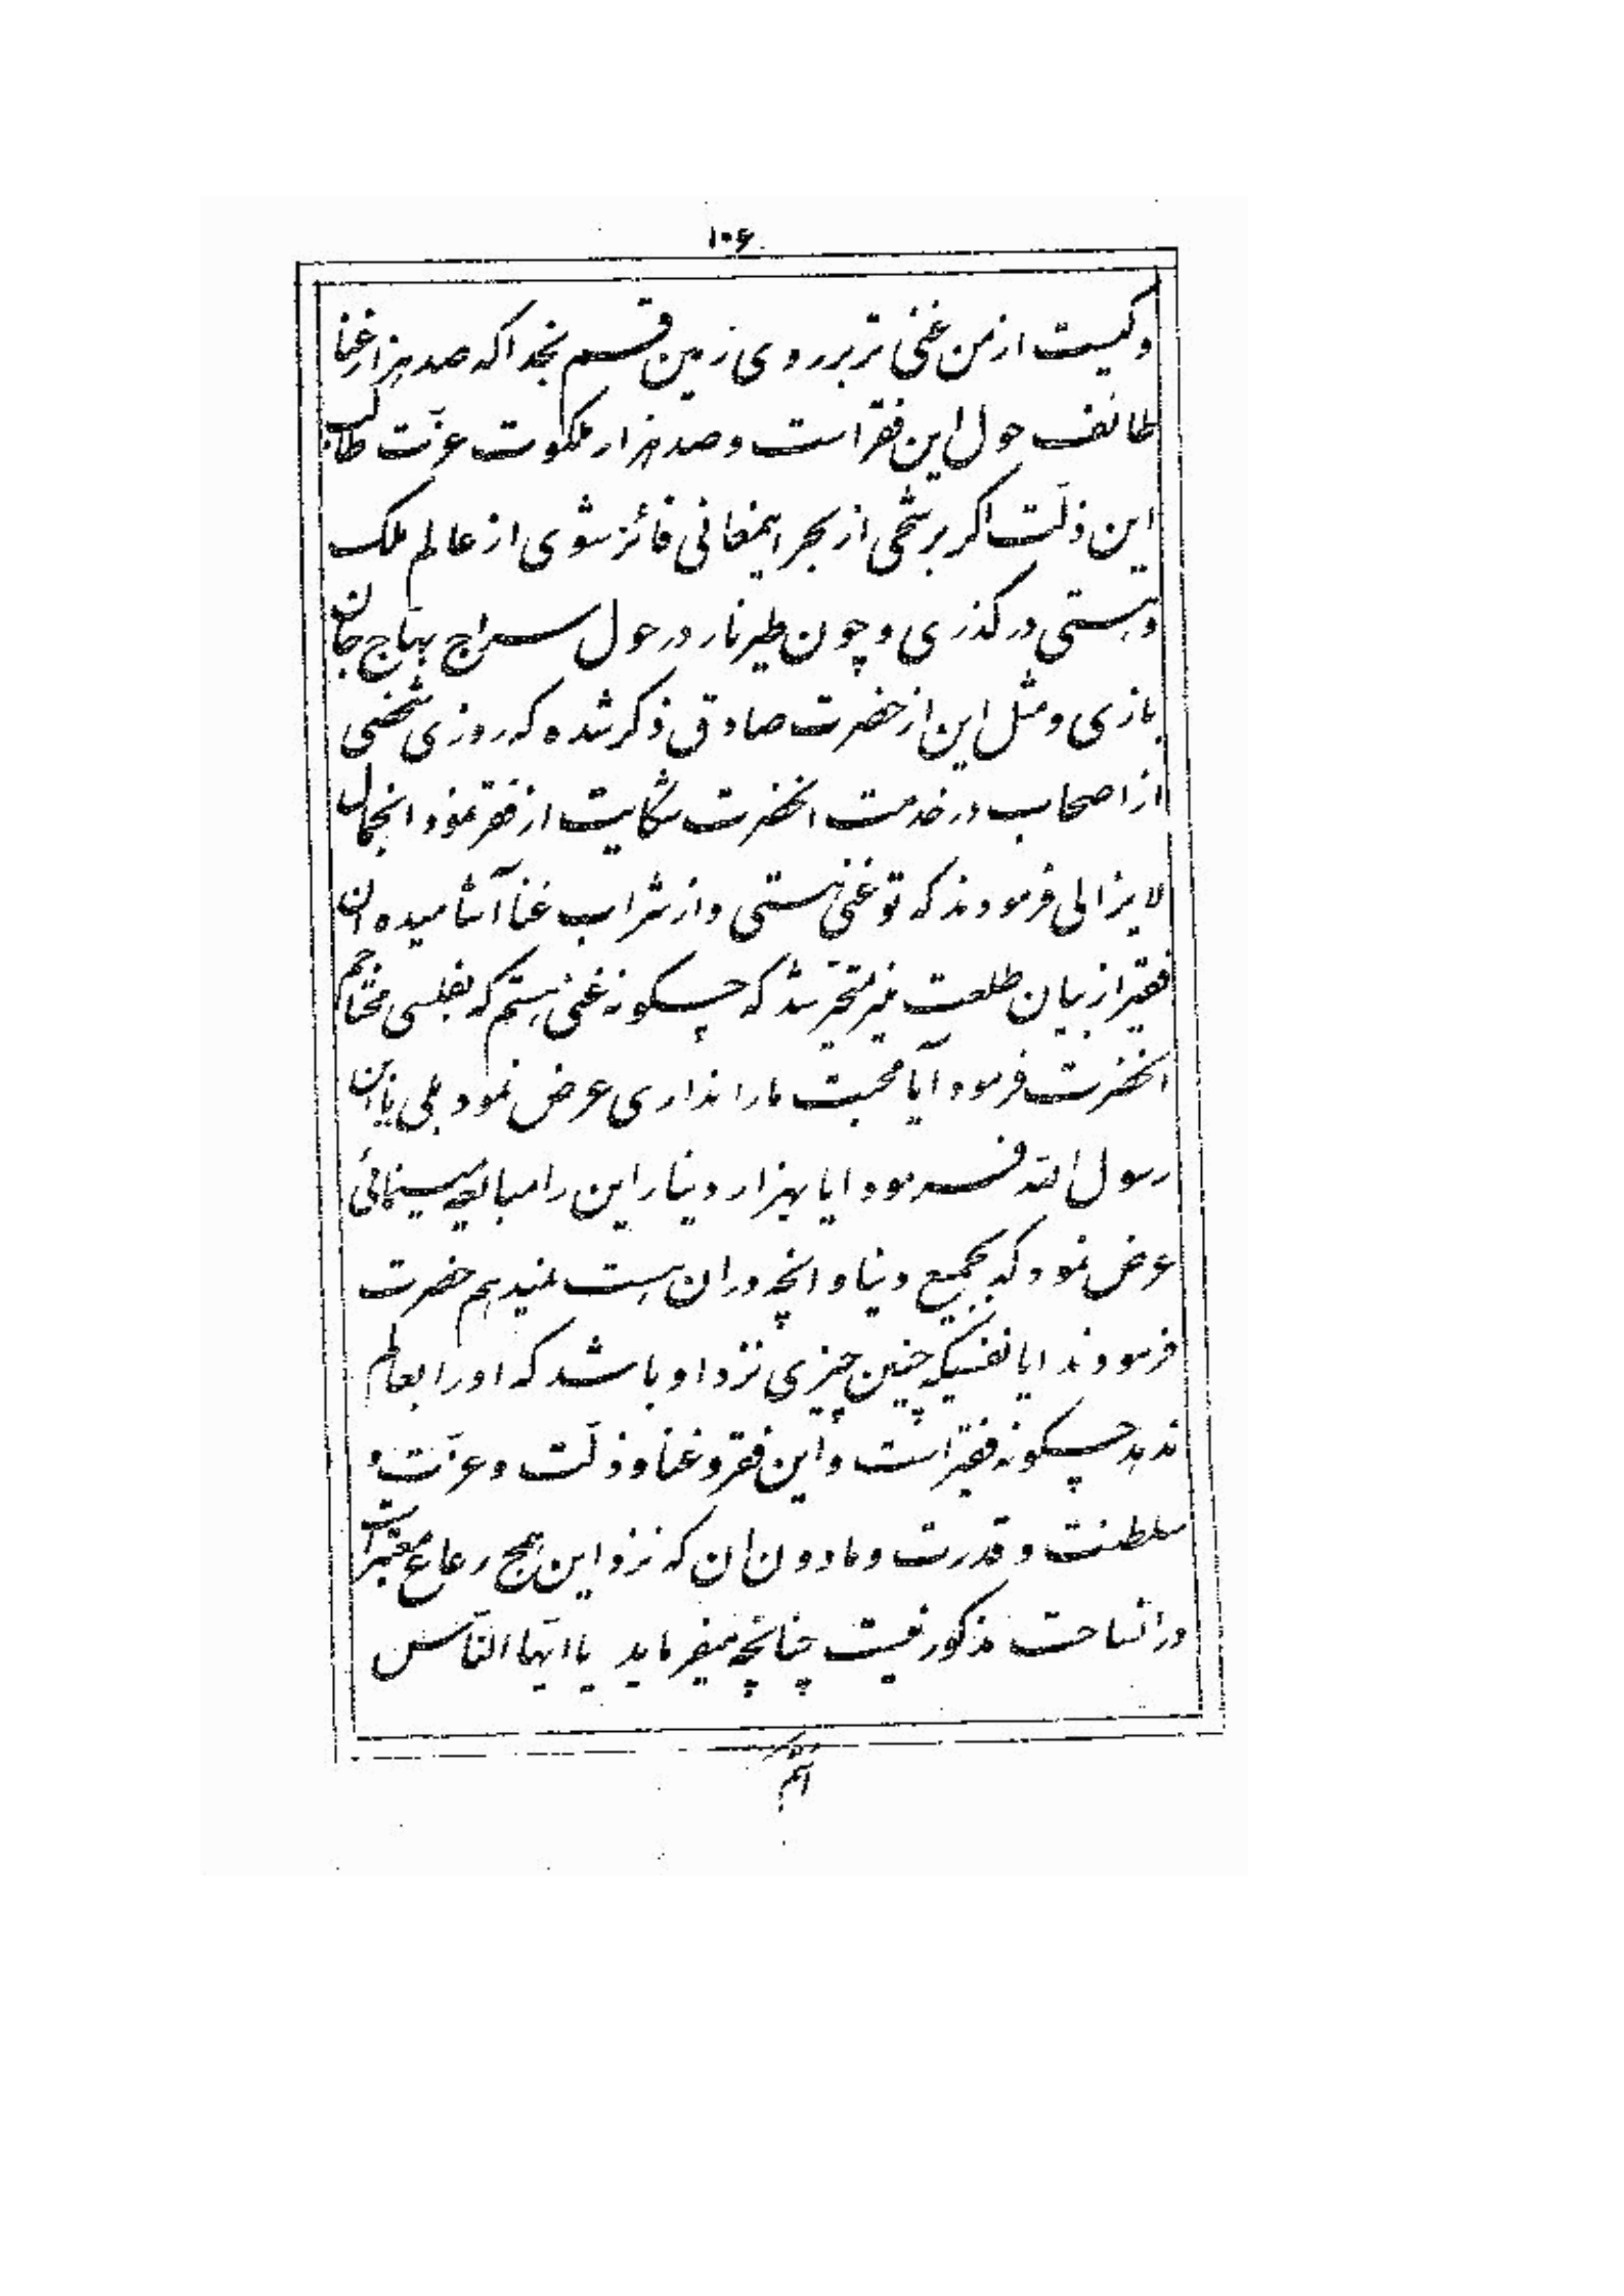 ۱۰۶
وکیست از من غنی تر بر روی زمین قسم بخدا که صد هزار غنا
طائف حول این فقر است و صد هزار ملکوت عزّت طالب
این ذلّت اکر برشحی از بحر ایمعانی فائز شوی از عالم ملک
وهستی در کذری و چون طیر نار در حول سراج وهاج جان
بازی و مثل این از حضرت صادق ذکر شده که روزی شخصی
از اصحاب در خدمت انحضرت شکایت از فقر نمود انجمال
لا یزالی فرمودند که تو غنی هستی و از شراب غنا آشامیده ان
فقیر از بیان طلعت منیر متحیّر شد که چکونه غنی هستم که بفلسی محتاجم
انحضرت فرمود آیا محبت ما را نداری عرض نمود بلی یا ابن
رسول الله فرمود ایا بهزار دینار این را مبایعه مینمائی
عرض نمود که بجمیع دنیا و انچه در ان هست نمیدهم حضرت
فرمودند ایا نفسیکه چنین چیزی نزد او باشد که او را بعالم
ندهد چکونه فقیر است و این فقر و غنا و ذلّت و عزّت و
سلطنت و قدرت و مادون ان که نزد این همج رعاع معتبر است
در انساحت مذکور نیست چنانچه میفرماید یا ایّها النّاس
انتم